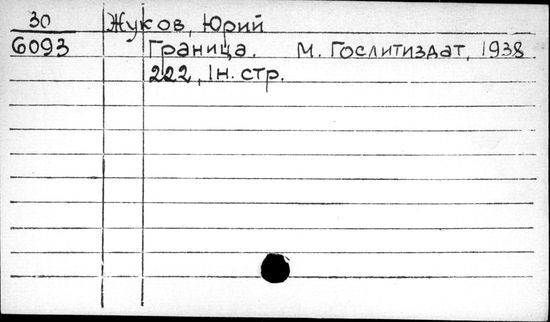 30 Жуков, Юрий
6093 Граница. М. Гослитиздат, 1938
222, 1н. стр.